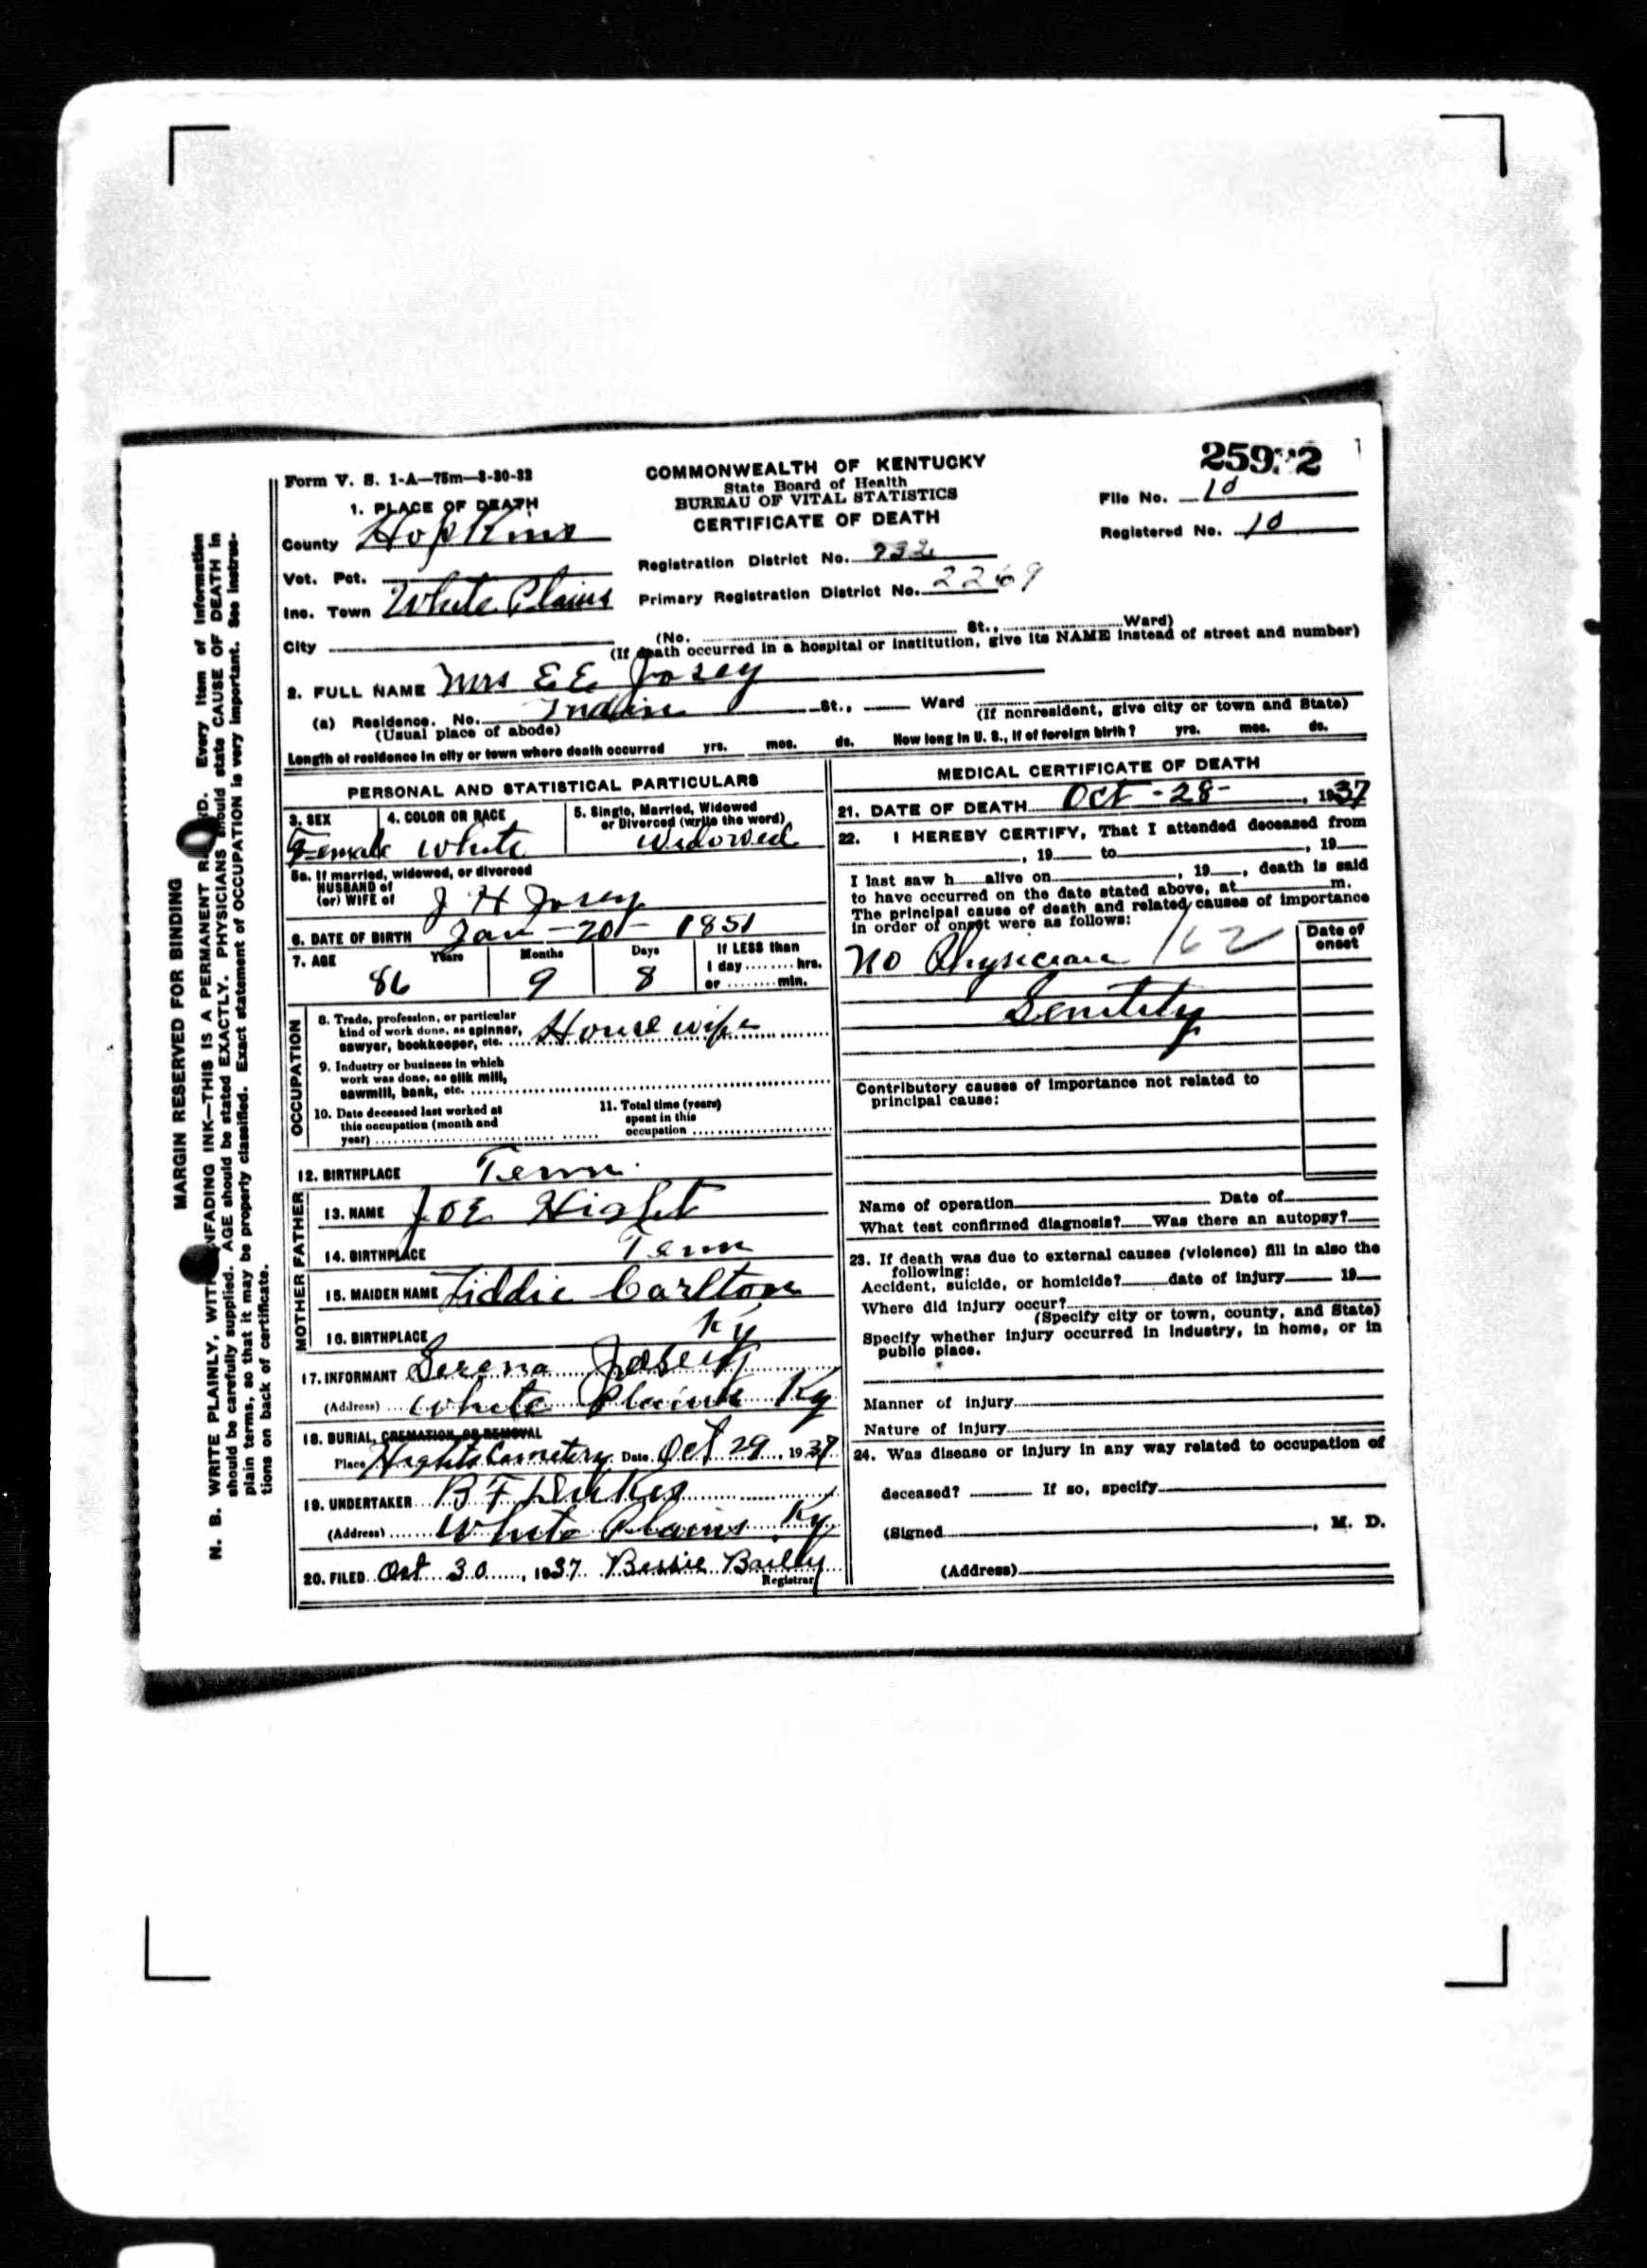 MARGIN RESERVED FOR BINDING
N. B. WRITE PLAINLY, WITH UNFADING INK—THIS IS A PERMANENT RECORD. Every item of information
should be carefully supplied. AGE should be stated EXACTLY. PHYSICIANS should state CAUSE OF DEATH in
plain terms, so that it may be properly classified. Exact statement of OCCUPATION is very important. See instruc-
tions on back of certificate.
Form V. S. 1-A—75m—3-30-32
COMMONWEALTH OF KENTUCKY
State Board of Health
BUREAU OF VITAL STATISTICS
CERTIFICATE OF DEATH
File No. 10
Registered No. 10
1. PLACE OF DEATH
County Hopkins
Registration District No. 732
Vot. Pct.
Inc. Town White Plains
Primary Registration District No. 2269
City
(No. St., Ward)
(If death occurred in a hospital or institution, give its NAME instead of street and number)
2. FULL NAME Mrs E E Josey
(a) Residence. No. St., Ward
(Usual place of abode)
(If nonresident, give city or town and State)
Length of residence in city or town where death occurred yrs. mos. ds. How long in U. S., if of foreign birth? yrs. mos. ds.
PERSONAL AND STATISTICAL PARTICULARS
3. SEX Female
4. COLOR OR RACE White
5. Single, Married, Widowed
or Divorced (write the word)
Widowed
5a. If married, widowed, or divorced
HUSBAND of
(or) WIFE of J H Josey
6. DATE OF BIRTH Jan - 20 - 1851
7. AGE Years Months Days If LESS than
1 day ........ hrs.
or ........ min.
86 9 8
OCCUPATION
8. Trade, profession, or particular
kind of work done, as spinner,
sawyer, bookkeeper, etc. House wife
9. Industry or business in which
work was done, as silk mill,
sawmill, bank, etc.
10. Date deceased last worked at
this occupation (month and
year)
11. Total time (years)
spent in this
occupation
12. BIRTHPLACE Tenn.
FATHER
13. NAME Joe Hight
14. BIRTHPLACE Tenn
MOTHER
15. MAIDEN NAME Liddie Carlton
16. BIRTHPLACE Ky
17. INFORMANT Serena Josey
(Address) White Plains Ky
18. BURIAL, CREMATION, OR REMOVAL
Place Hights Cemetery Date Oct 29, 1937
19. UNDERTAKER B F Dukes
(Address) White Plains Ky
20. FILED Oct 30, 1937 Bessie Bailey
Registrar
MEDICAL CERTIFICATE OF DEATH
21. DATE OF DEATH Oct - 28 - , 1937
22. I HEREBY CERTIFY, That I attended deceased from
, 19 to , 19
I last saw h alive on , 19 , death is said
to have occurred on the date stated above, at m.
The principal cause of death and related causes of importance
in order of onset were as follows:
Date of
onset
No Physician 162
Senility
Contributory causes of importance not related to
principal cause:
Name of operation Date of
What test confirmed diagnosis? Was there an autopsy?
23. If death was due to external causes (violence) fill in also the
following:
Accident, suicide, or homicide? date of injury 19
Where did injury occur?
(Specify city or town, county, and State)
Specify whether injury occurred in industry, in home, or in
public place.
Manner of injury
Nature of injury
24. Was disease or injury in any way related to occupation of
deceased? If so, specify
(Signed , M. D.
(Address)